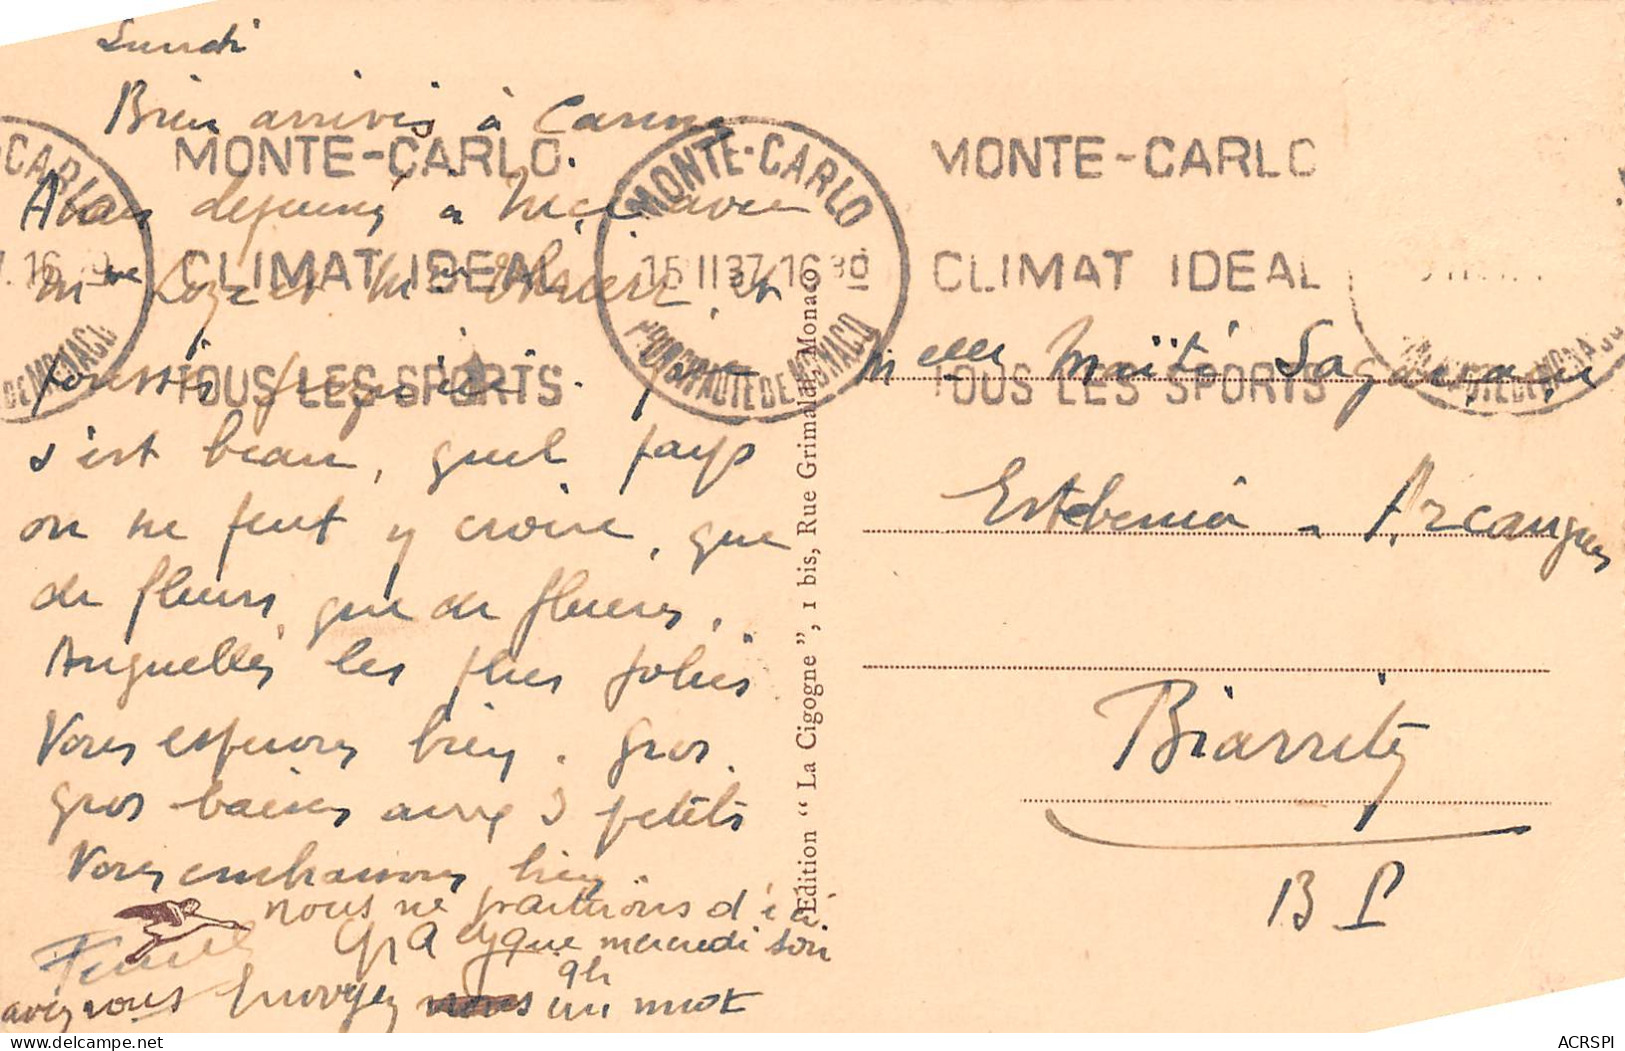 Lundi
Bien arrivés à Cannes
Avons déjeuné à Nice avec
Mme et Mr et
.
s'est beau, quel pays
on ne peut y croire, que
de fleurs, que de fleurs,
les plus jolies
Vous espérons bien. Gros.
gros baisers aux 3 petits
Vous embrassons bien.
nous ne partirons d'ici
que mercredi soir
9h
avez vous envoyez nous un mot
MONTE-CARLO
CLIMAT IDEAL
TOUS LES SPORTS
MONTE-CARLO
15 II 37 16 30
PPAUTE DE MONACO
MONTE-CARLO
CLIMAT IDEAL
TOUS LES SPORTS
-CARLO
DE MONACO
Edition “ La Cigogne ”, 1 bis, Rue Grimaldi, Monaco
Melle Maïté
Arcangues
Biarritz
B P
ACRSPI